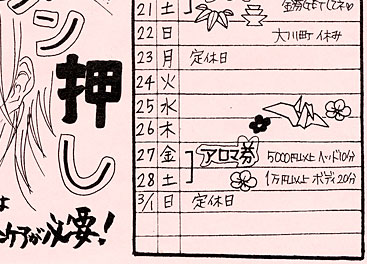 ン
押
し
は
ケアが必要!
21 土 金券GETしてネ♡
22 日 大川町 休み
23 月 定休日
24 火
25 水
26 木
27 金 アロマ券 5000円以上 ヘッド10分
28 土 1万円以上 ボディ20分
3/1 日 定休日